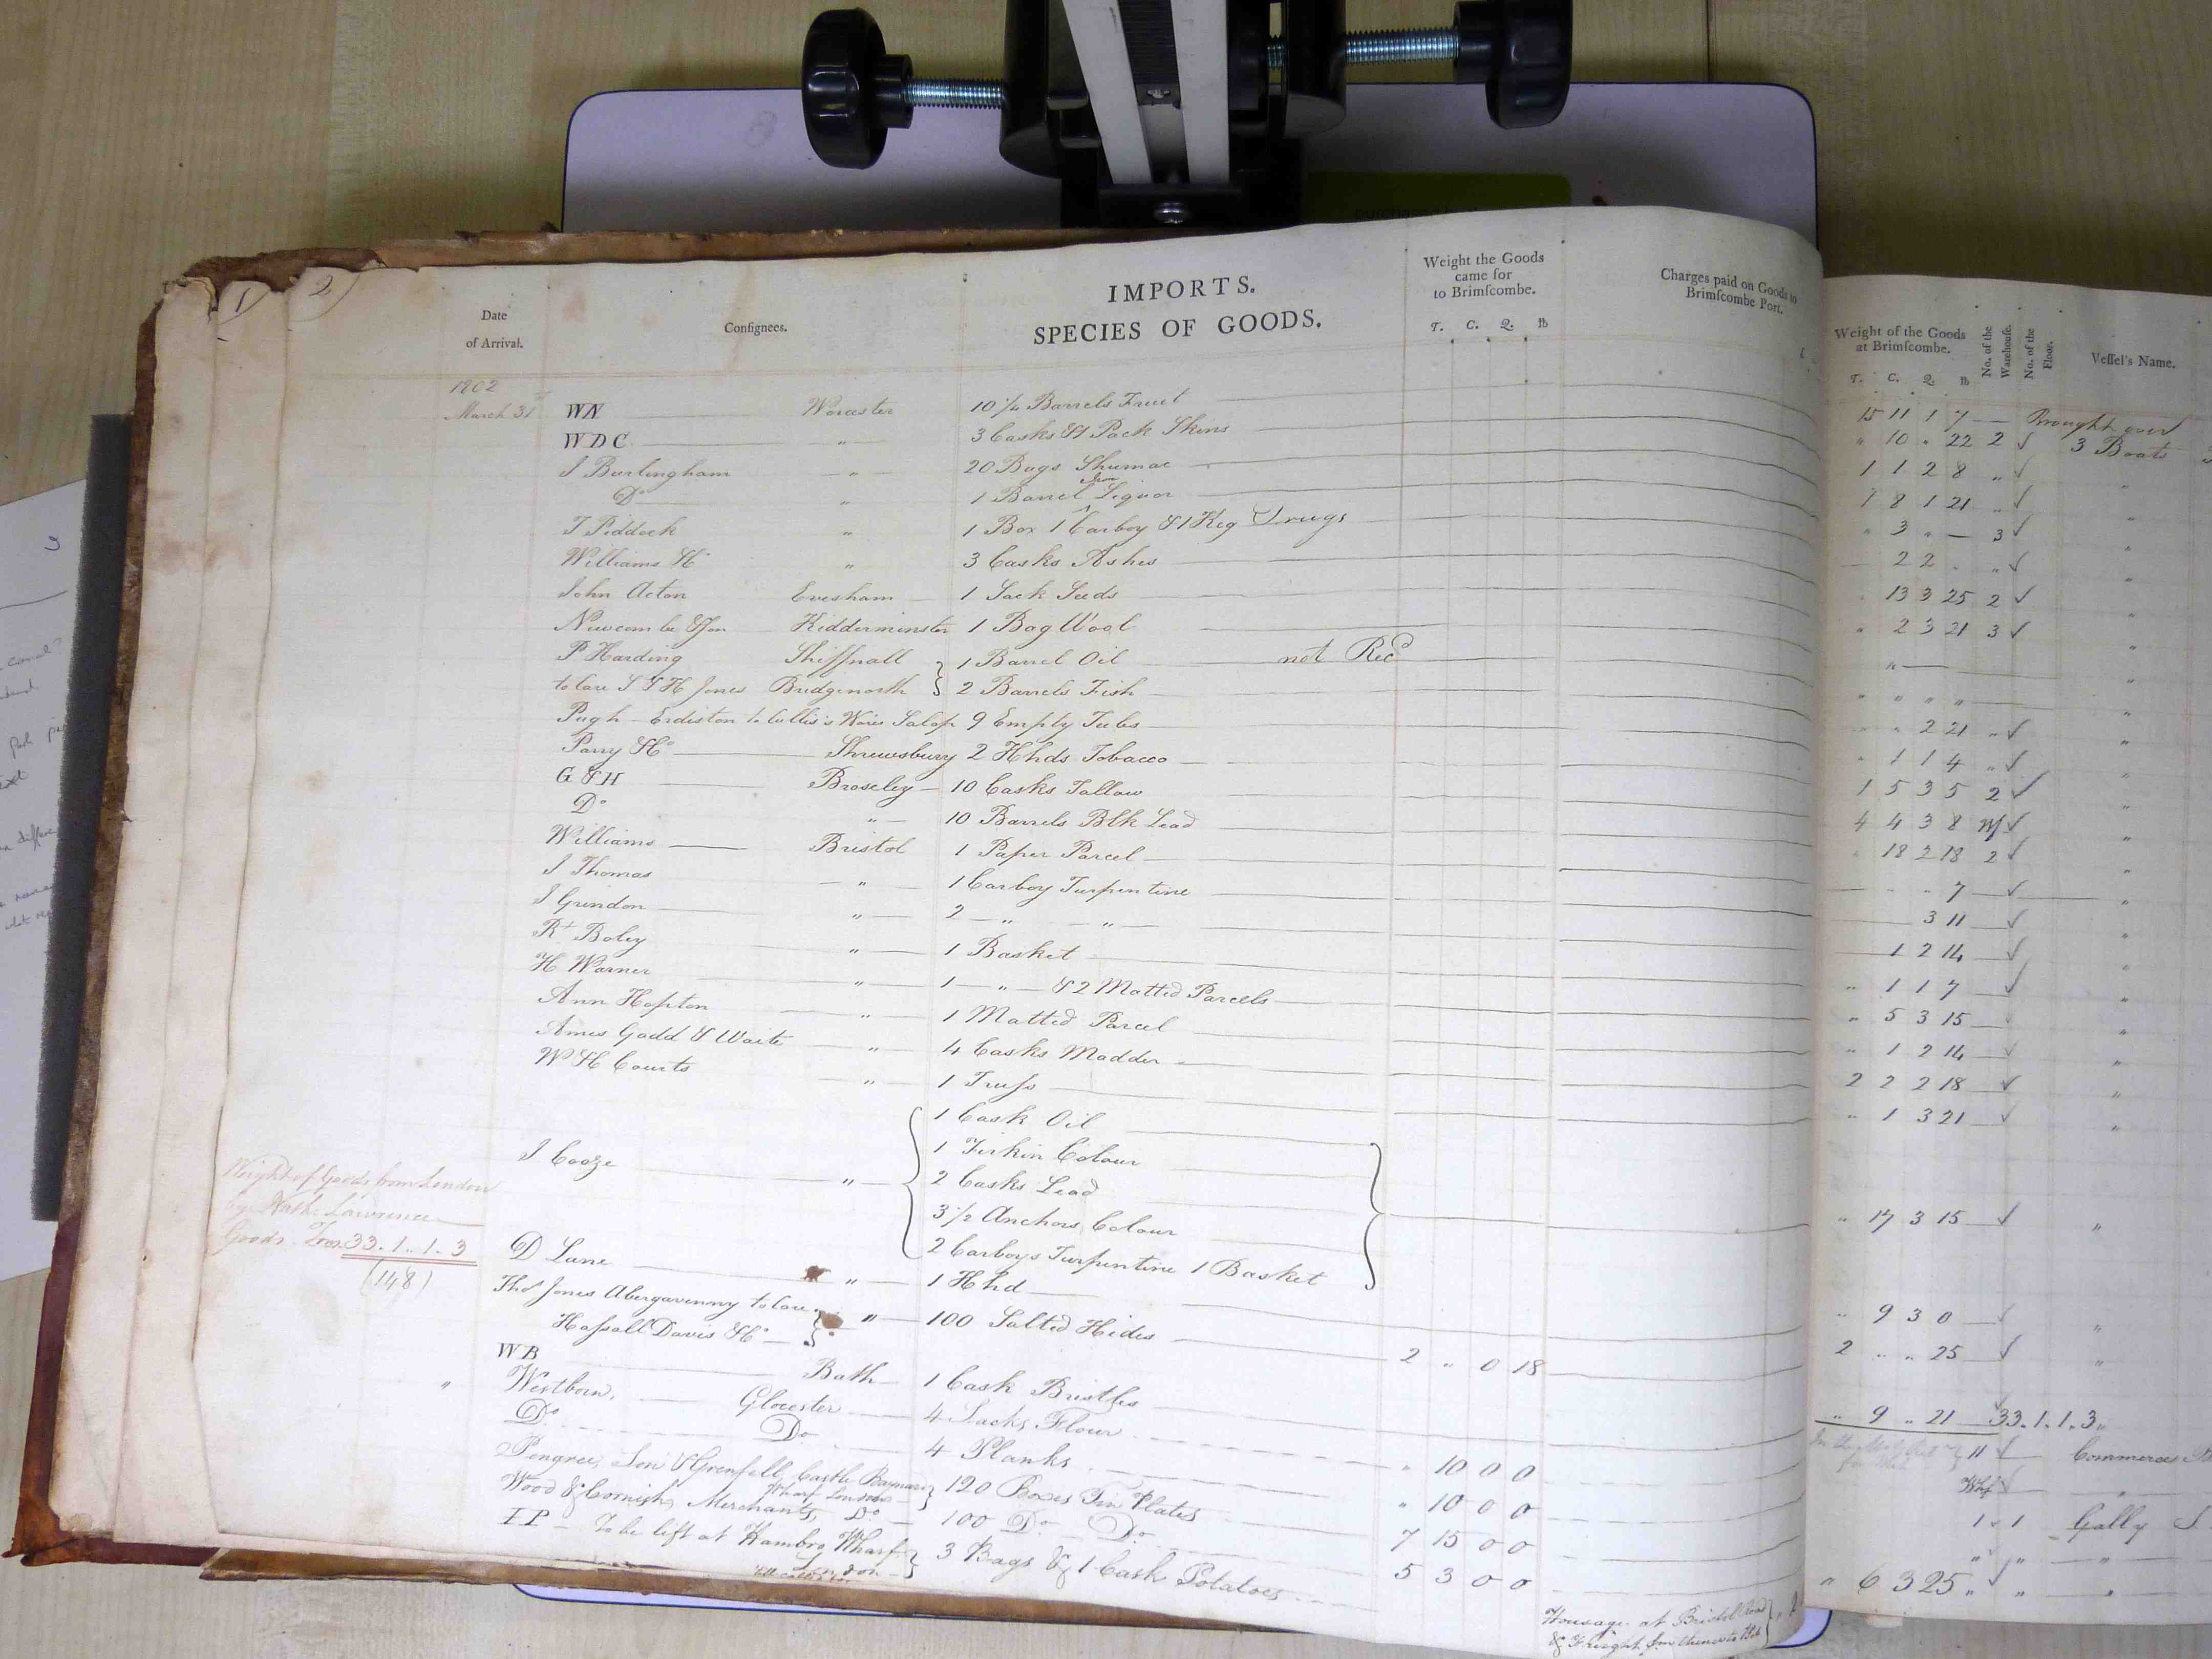 1
2
Date
of Arrival.
Consignees.
IMPORTS.
SPECIES OF GOODS.
Weight the Goods
came for
to Brimſcombe.
T. C. Q. lb
Charges paid on Goods to
Brimſcombe Port.
Weight of the Goods
at Brimſcombe.
T. C. Q. lb
No. of the
Warehouſe.
No. of the
Floor.
Veſſel's Name.
1802
March 31st WN Worcester 10 1/2 Barrels Fruit 15 11 1 7 — Brought over
WDC " 3 Casks & 1 Pack Skins " 10 " 22 2 ✓ 3 Boats
J Burlingham " 20 Bags Shumac 1 1 2 8 " ✓ "
Do " 1 Barrel Iron Liquor 1 8 1 21 " ✓ "
T Piddock " 1 Box 1 Carboy & 1 Keg Drugs " 3 " — 3 ✓ "
Williams & Co " 3 Casks Ashes 2 2 " " ✓ "
John Acton Evesham 1 Sack Seeds 13 3 25 2 ✓ "
Newcombe & Son Kidderminster 1 Bag Wool " 2 3 21 3 ✓ "
P Harding Shiffnall } 1 Barrel Oil not Recd " — "
to care S & H Jones Bridgnorth } 2 Barrels Fish " " " " "
Pugh — Erdiston to Cullis's Salop 9 Empty Tubs " " 2 21 " ✓ "
Parry & Co Shrewsbury 2 Hhds Tobacco " 1 1 4 " ✓ "
G & H Broseley 10 Casks Tallow 1 5 3 5 2 ✓ "
Do " 10 Barrels Blk Lead 4 4 3 8 ✓ "
Williams Bristol 1 Paper Parcel " 18 2 18 2 ✓
J Thomas " 1 Carboy Turpentine " " 7 ✓ "
J Grindon " 2 " " 3 11 ✓ "
Rt Boley " 1 Basket 1 2 14 ✓ "
H Warner " 1 " & 2 Matted Parcels " 1 1 7 ✓ "
Ann Hopton " 1 Matted Parcel " 5 3 15 "
Ames Gadd & Waite " 4 Casks Madder " 1 2 14 ✓ "
W H Courts " 1 Truſs 2 2 2 18 ✓ "
1 Cask Oil " 1 3 21 ✓ "
1 Firkin Colour
J Cooze " 2 Casks Lead
3 1/2 Anchors Colour " 17 3 15 ✓ "
2 Carboys Turpentine 1 Basket
D Lane " 1 Hhd " 9 3 0 ✓ "
Thos Jones Abergavenny to care } " 100 Salted Hides 2 " 0 18 2 " " 25 ✓ "
Haſsall Davis & Co }
WB Bath 1 Cask Bristles " 9 " 21 33.1.1.3 "
" Westborn, Glocester 4 Sacks Flour " 10 0 0 11 ✓ Commerce
Do Do 4 Planks " 10 0 0 Whf ✓ "
Pengree, Son & Grenfell, Castle Baynard } 120 Boxes Tin Plates 7 15 0 0 1 ✓ 1 Gally
Wharf London
Wood & Cornish, Merchants, Do 100 Do Do 5 3 0 0 " ✓ " "
IP — To be left at Hambro Wharf } 3 Bags & 1 Cask Potatoes " 6 3 25 " ✓ " "
London
Housage at Bristol Road
& Freight
Weight of Goods from London
by Nathl Lawrence
Goods Tons 33.1..1.3
(148)